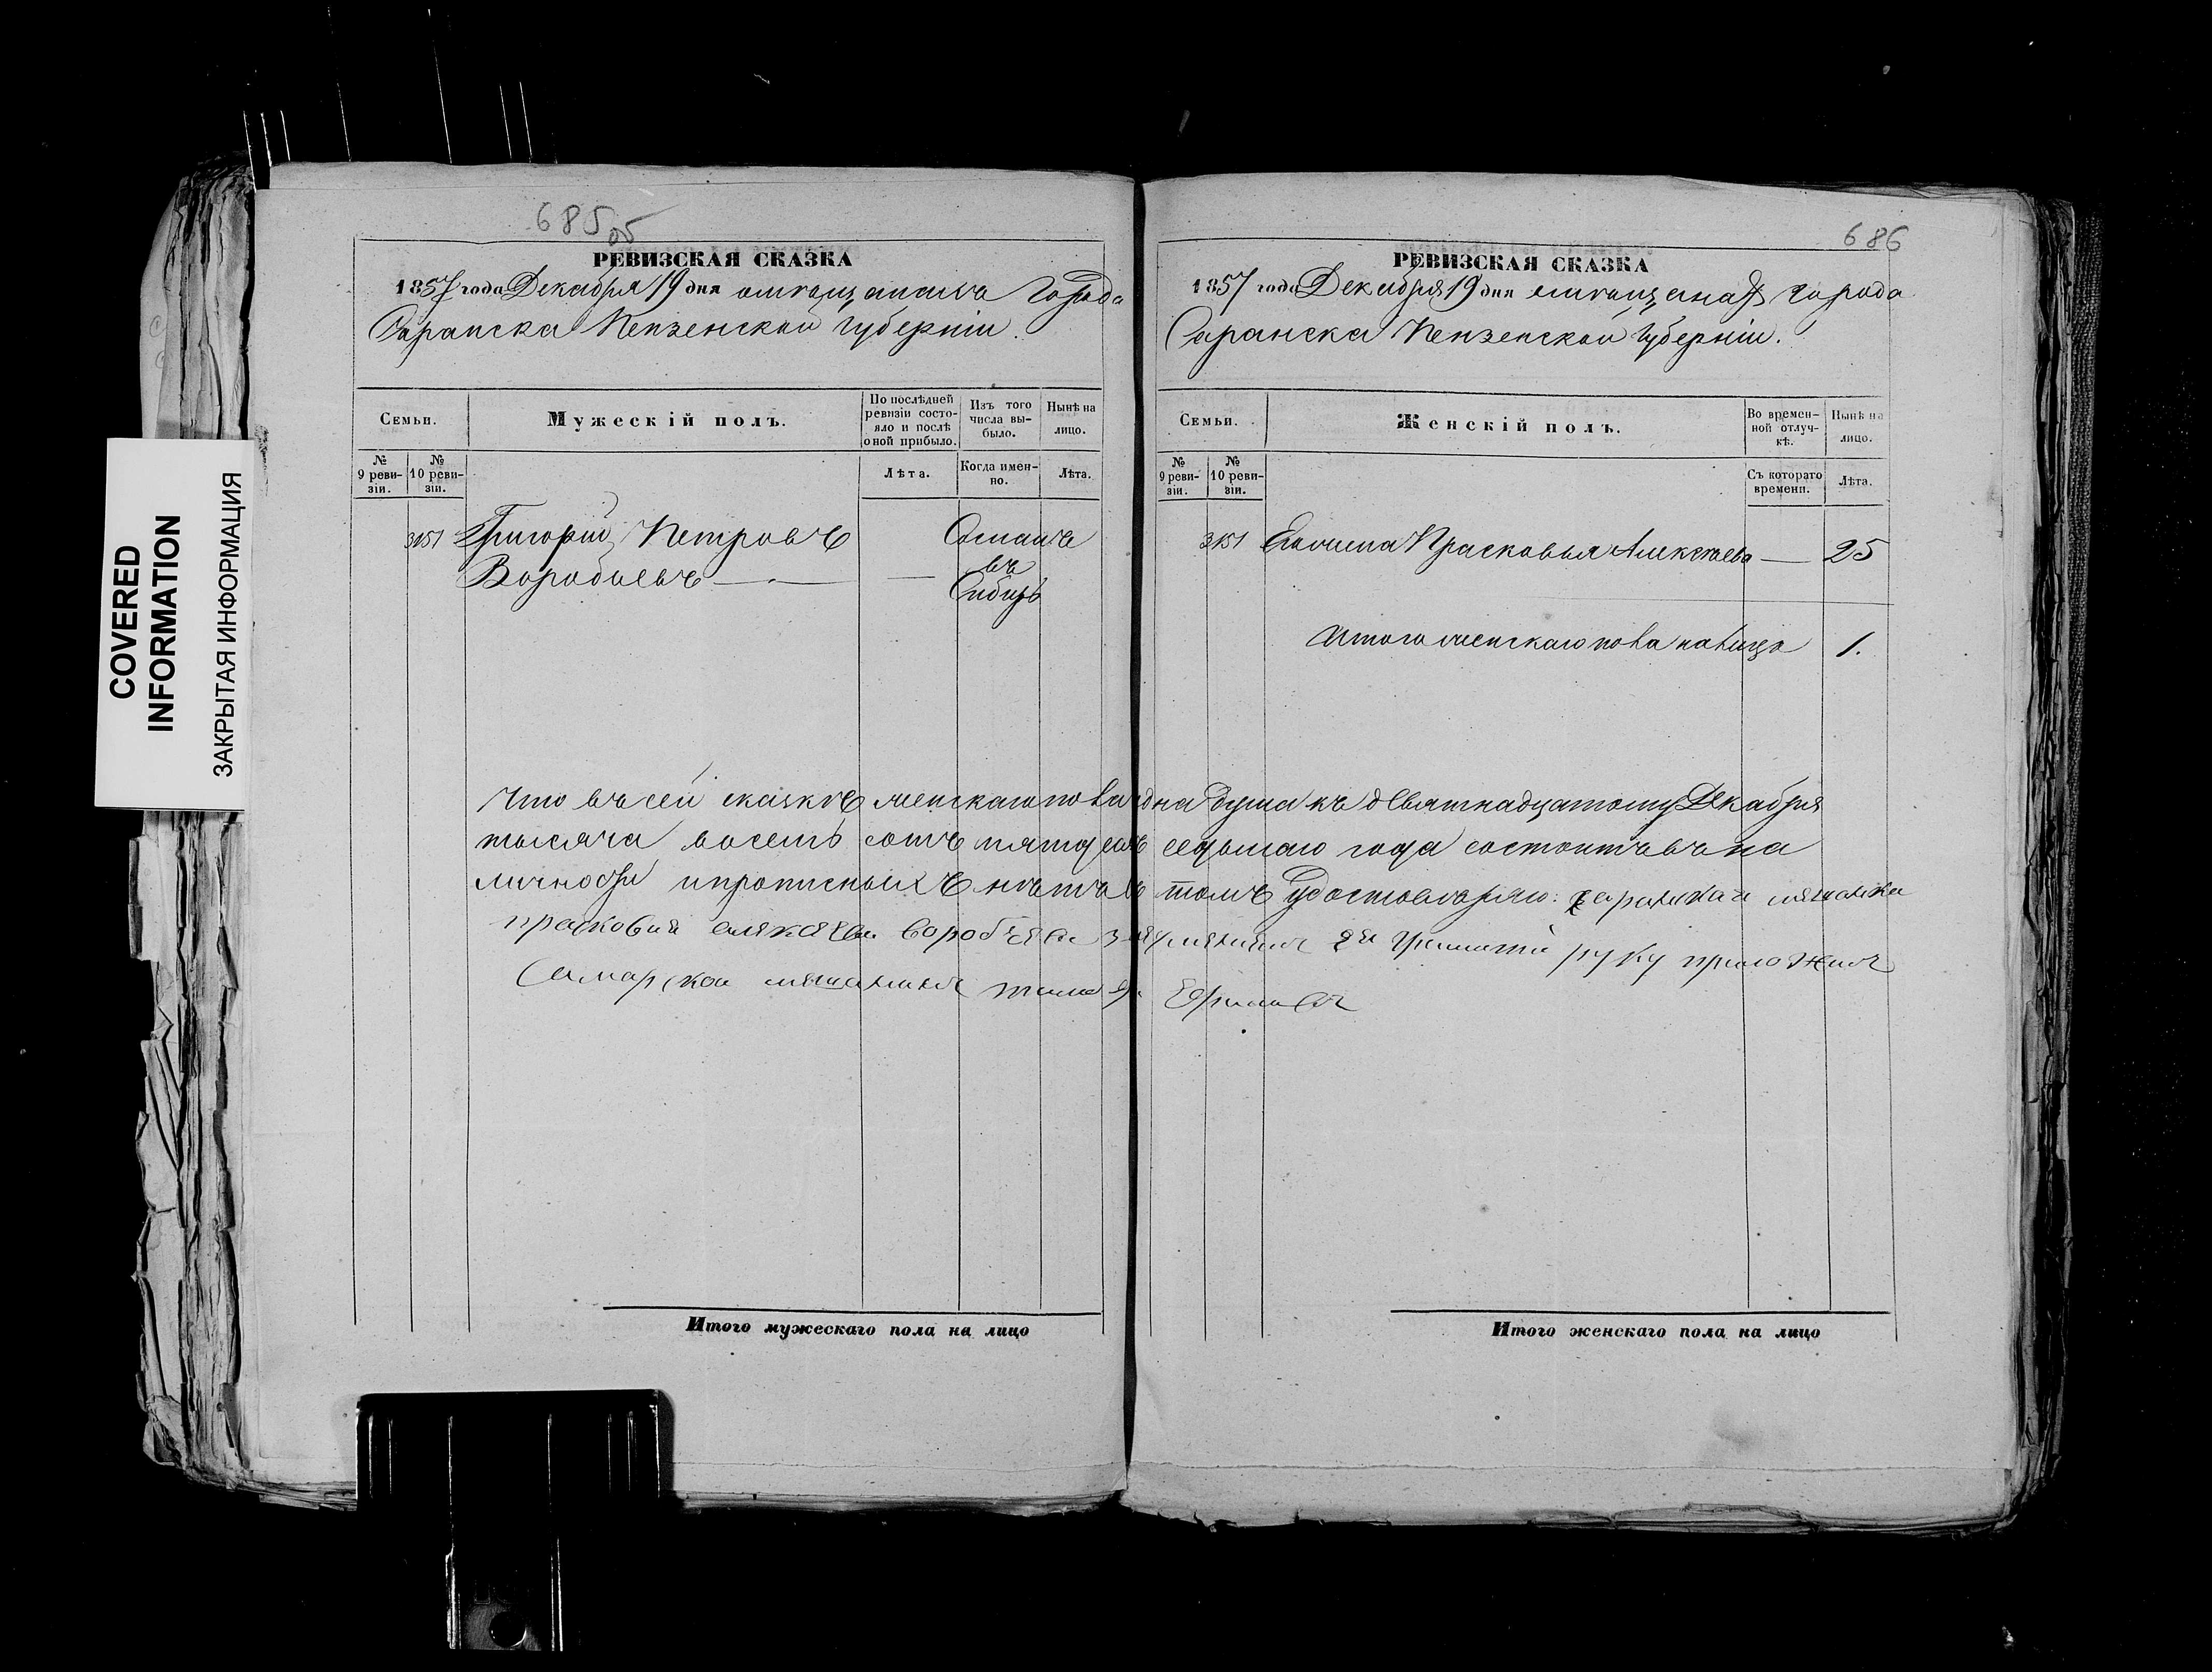 COVERED
INFORMATION
ЗАКРЫТАЯ ИНФОРМАЦИЯ
685 об
РЕВИЗСКАЯ СКАЗКА
1857 года Декабря 19 дня города
Саранска Пензенской губернiи.
Семьи.
Мужескiй полъ.
По послѣдней
ревизiи состо-
яло и послѣ
оной прибыло.
Изъ того
числа вы-
было.
Нынѣ на
лицо.
№
9 реви-
зiи.
№
10 реви-
зiи.
Лѣта.
Когда имен-
но.
Лѣта.
3151 Григорий Петровъ
Воробьевъ — —
Сосланъ
въ
Сибирь
Итого мужескаго пола на лицо
686
РЕВИЗСКАЯ СКАЗКА
1857 года Декабря 19 дня города
Саранска Пензенской губернiи.
Семьи.
Женскiй полъ.
Во времен-
ной отлуч-
кѣ.
Нынѣ на
лицо.
№
9 реви-
зiи.
№
10 реви-
зiи.
Съ котораго
времени.
Лѣта.
3151 Прасковья Алексѣева — 25
Итого женскаго пола налицо 1.
Что въ сей сказкѣ женскаго пола одна душа къ девятнадцатому Декабря
тысяча восемь сотъ пятдесятъ седьмаго года состоитъ въ на
личности и прописныхъ нѣтъ въ томъ удостоверяю: саранская мѣщанка
прасковия воробьева руку приложилъ
Самарской мещанинъ
Итого женскаго пола на лицо